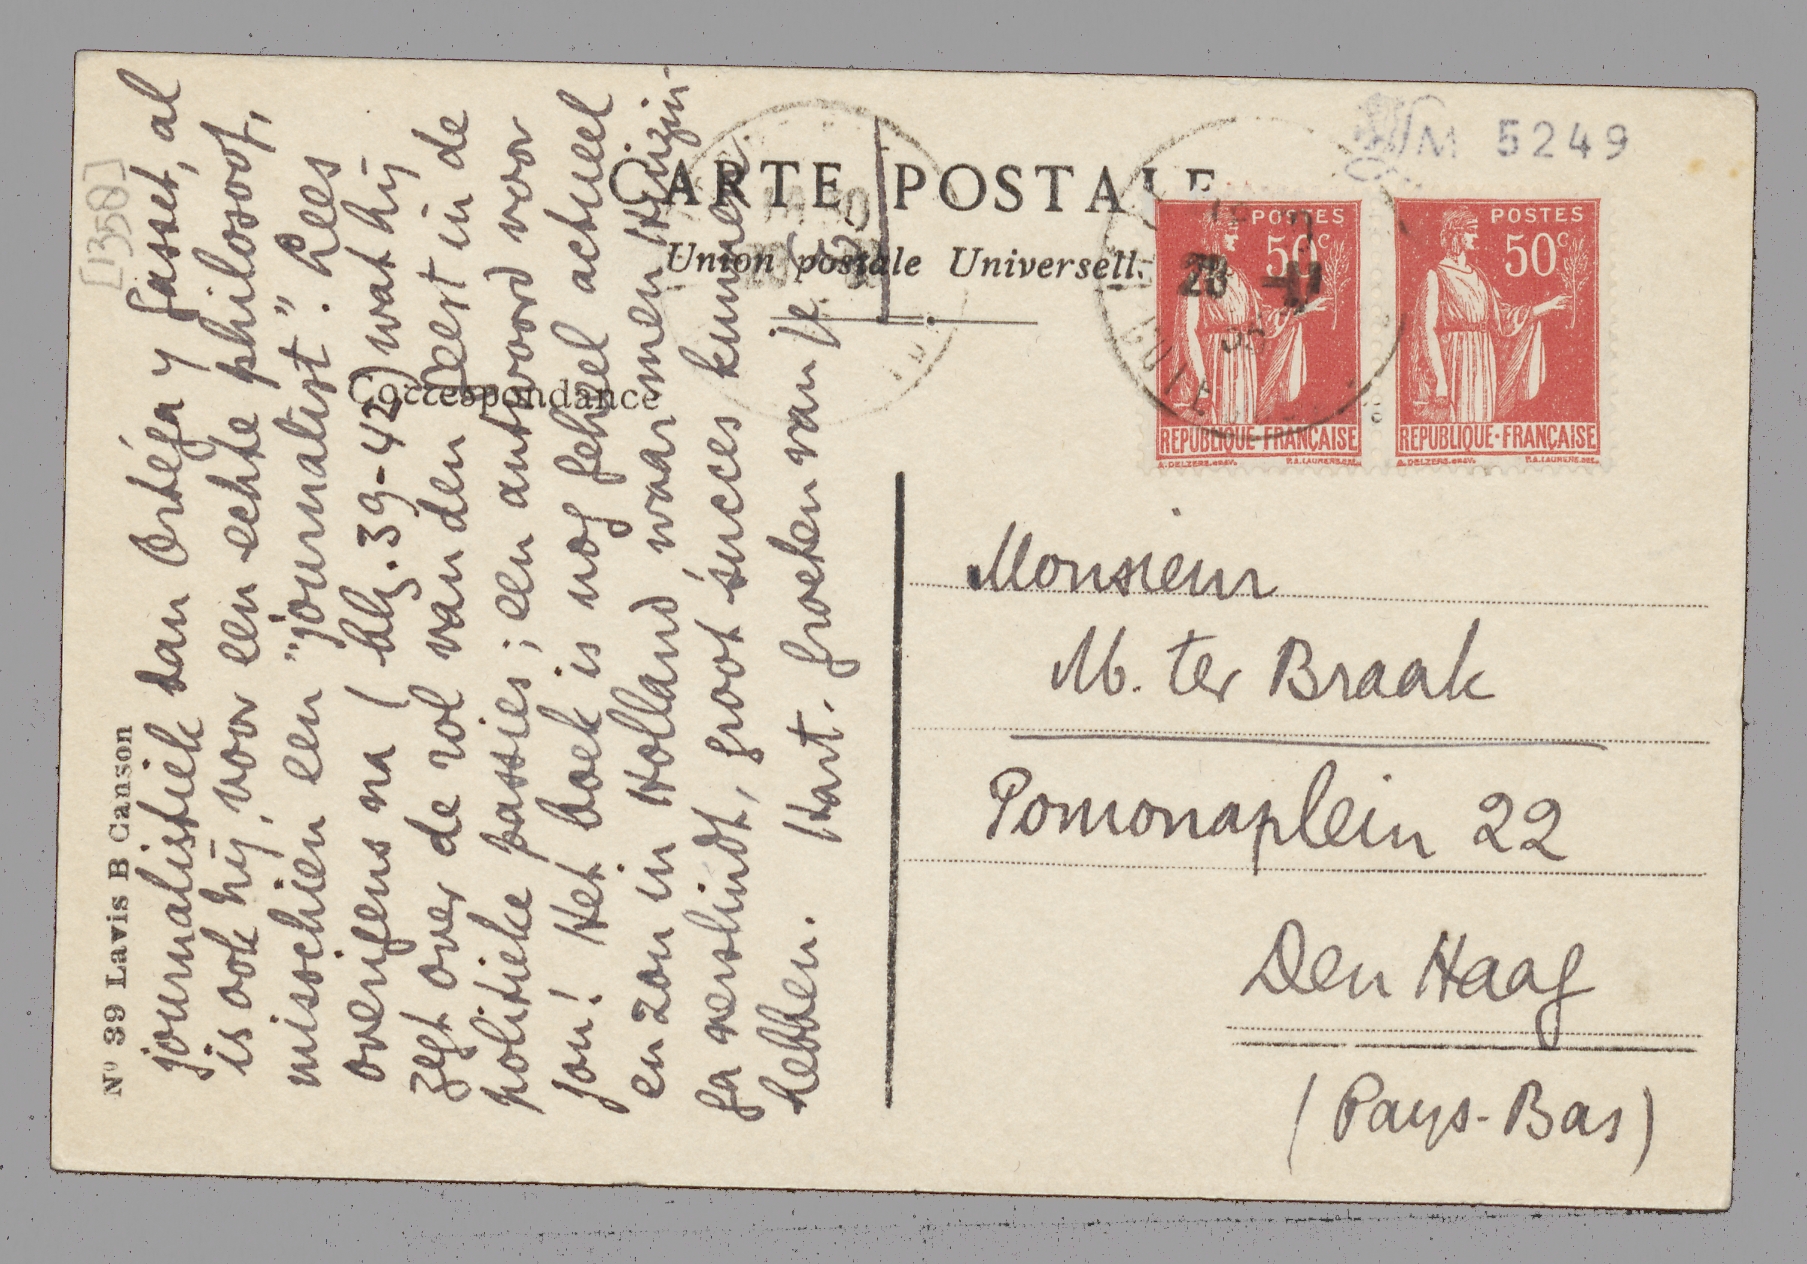 [1358]
M 5249
CARTE POSTALE
Union postale Universelle
Correspondance
Nº 39 Lavis B Canson
journalistiek dan Ortéga y Gasset, al
is ook hij, voor een echte philosoof,
misschien een "journalist". Lees
overigens na (blz. 39-42) wat hij
zegt over de rol van den Geest in de
politieke passies; een antwoord voor
jou! Het boek is nog geheel actueel
en zou in Holland, waar men Huizin-
ga verslindt, groot succes kunnen
hebben. Hart. groeten van je
POSTES
50c
REPUBLIQUE·FRANÇAISE
POSTES
50c
REPUBLIQUE·FRANÇAISE
28 -11
Monsieur
M. ter Braak
Pomonaplein 22
Den Haag
(Pays-Bas)